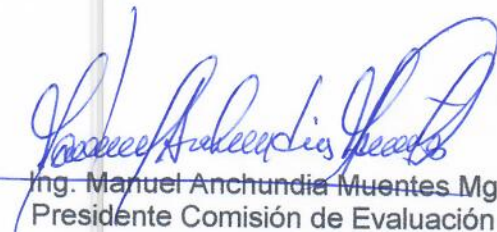 Ing. Manuel Anchundia Muentes Mg
Presidente Comisión de Evaluación